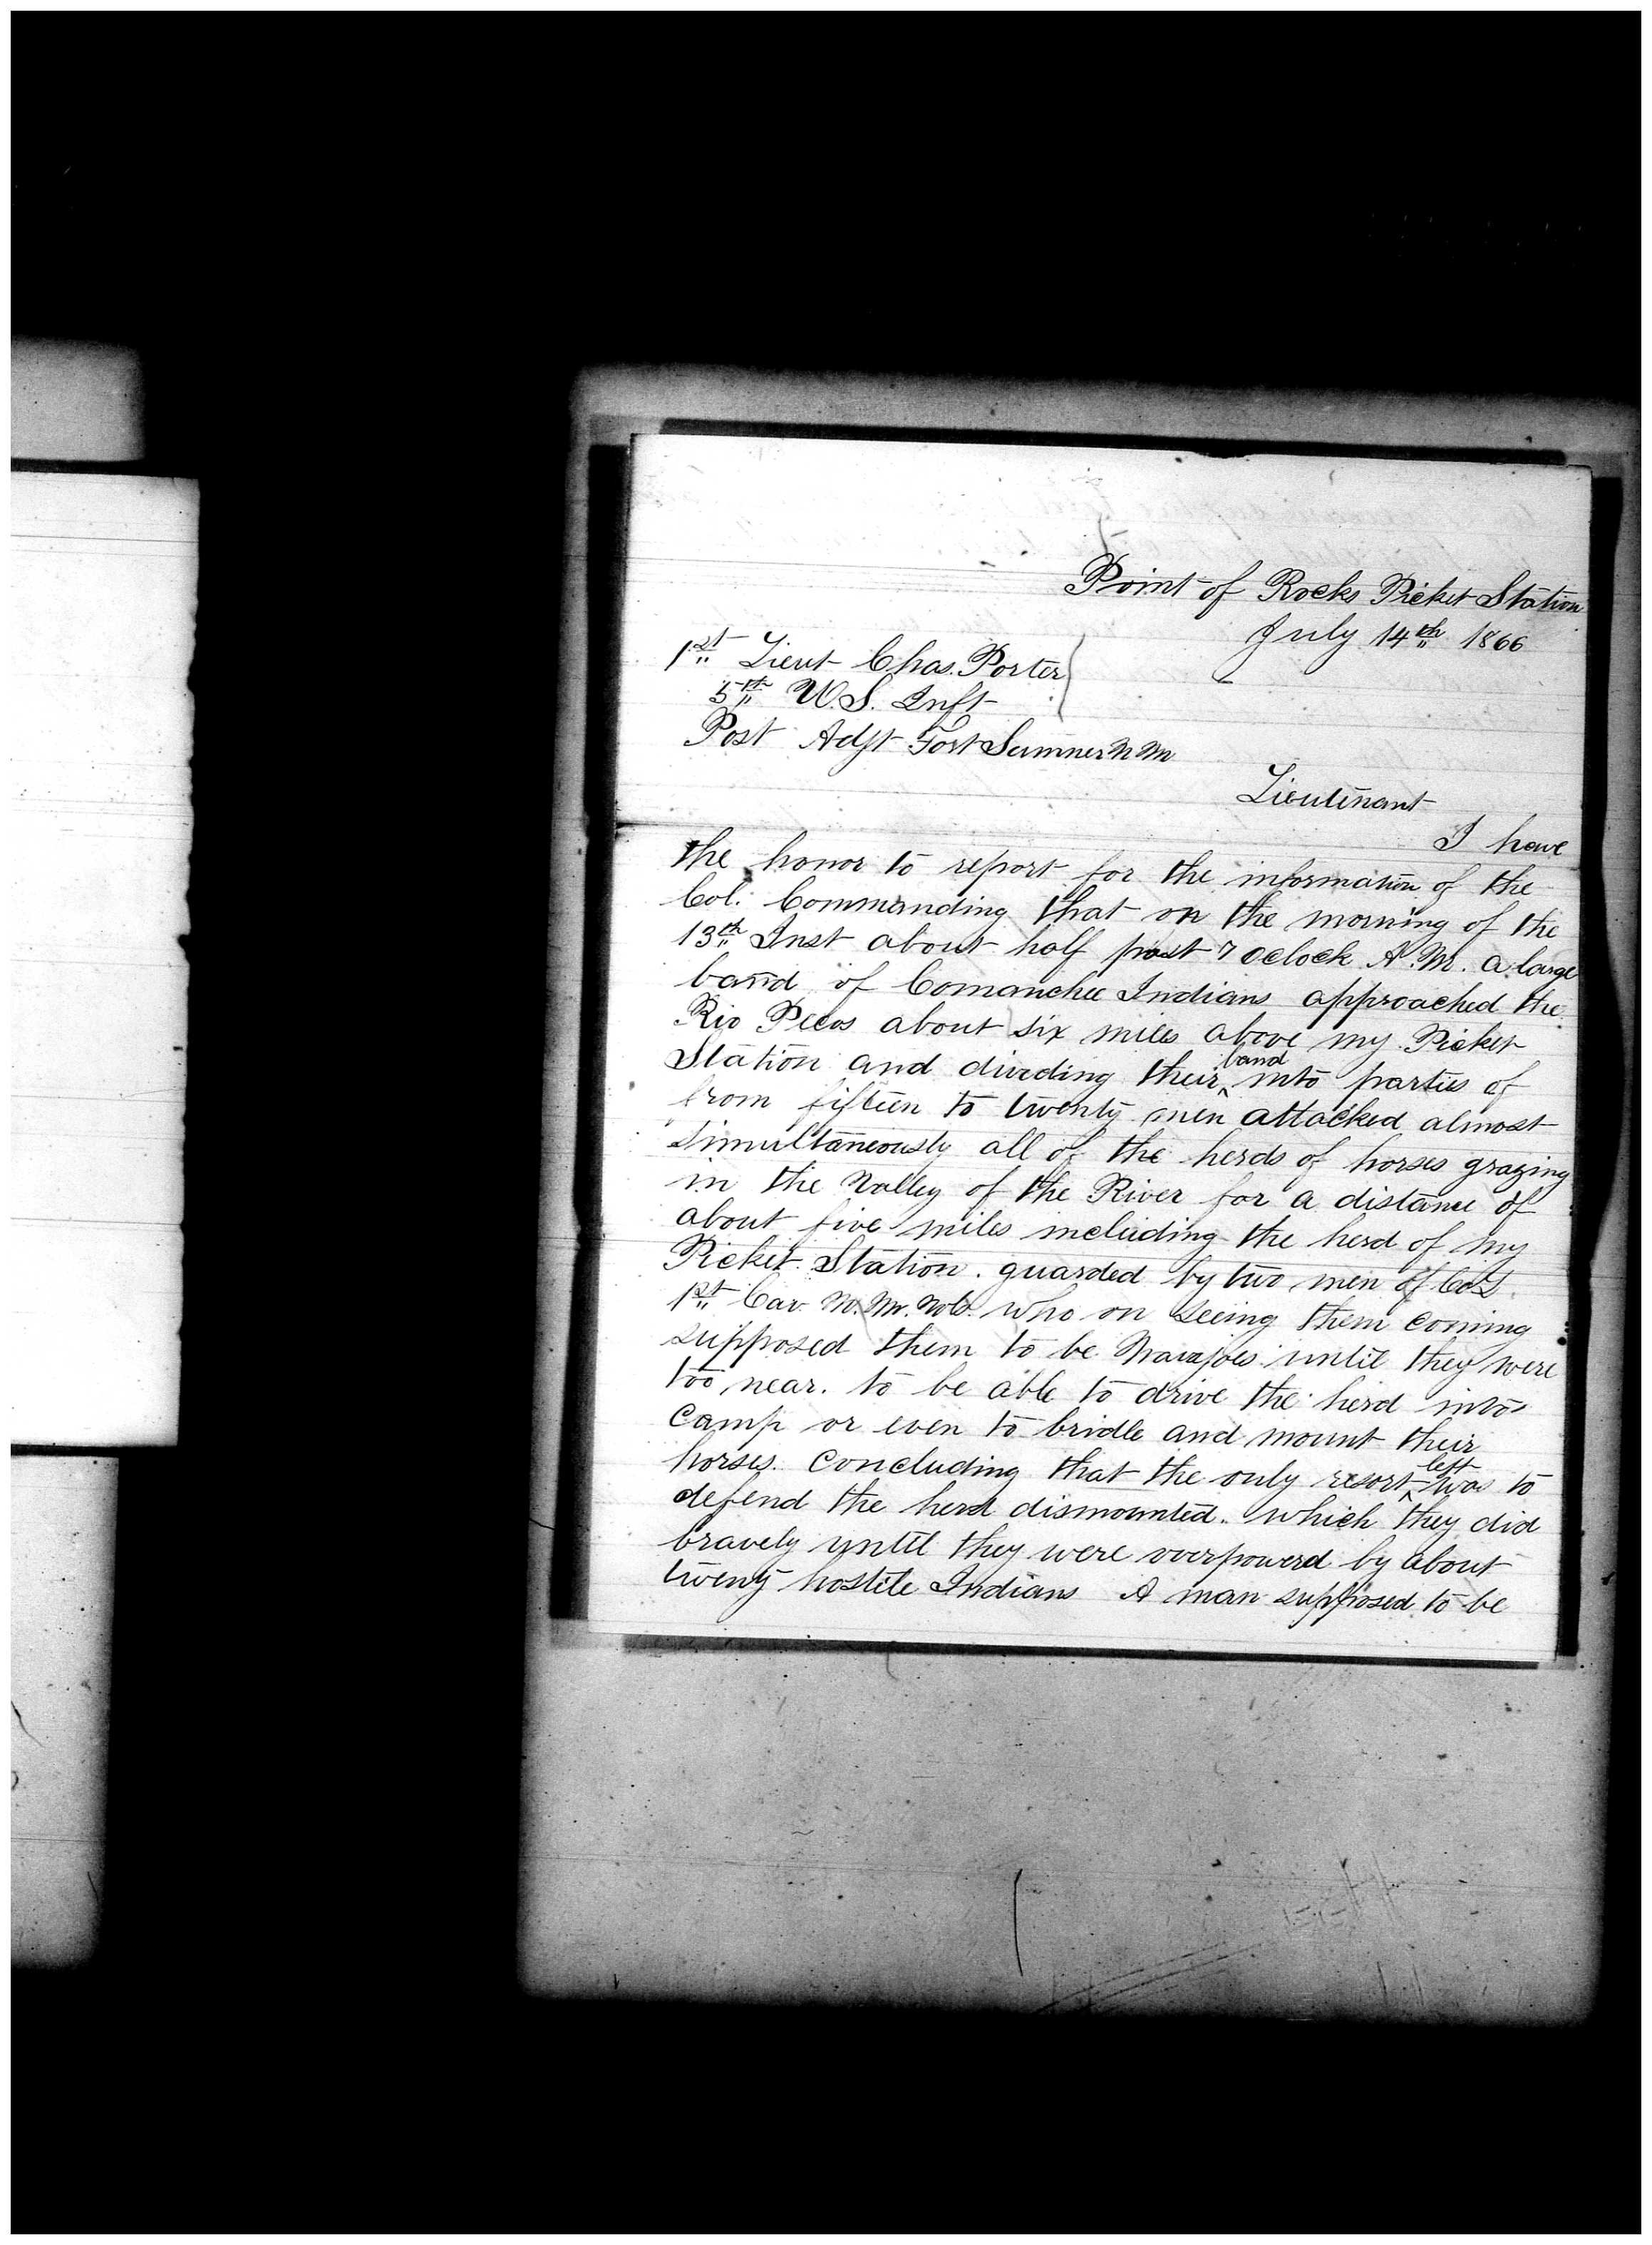 Point of Rocks Picket Station
July 14th 1866
1st Lieut Chas. Porter
5th U.S. Inft
Post Adjt Fort Sumner N M
Lieutenant
I have
the honor to report for the information of the
Col. Commanding that on the morning of the
13th Inst about half past 7 oclock A.M. a large
band of Comanchee Indians approached the
Rio Pecos about six miles above my Picket
Station and dividing their band into parties of
from fifteen to twenty men attacked almost
simultaneously all of the herds of horses grazing
in the Valley of the River for a distance of
about five miles including the herd of my
Picket Station. guarded by two men of Co
1st Cav N. M. Vols. who on seeing them coming
supposed them to be Navajoes until they were
too near. to be able to drive the herd into
camp or even to bridle and mount their
horses. Concluding that the only resort left was to
defend the herd dismounted. which they did
bravely until they were overpowerd by about
twenty hostile Indians A man supposed to be